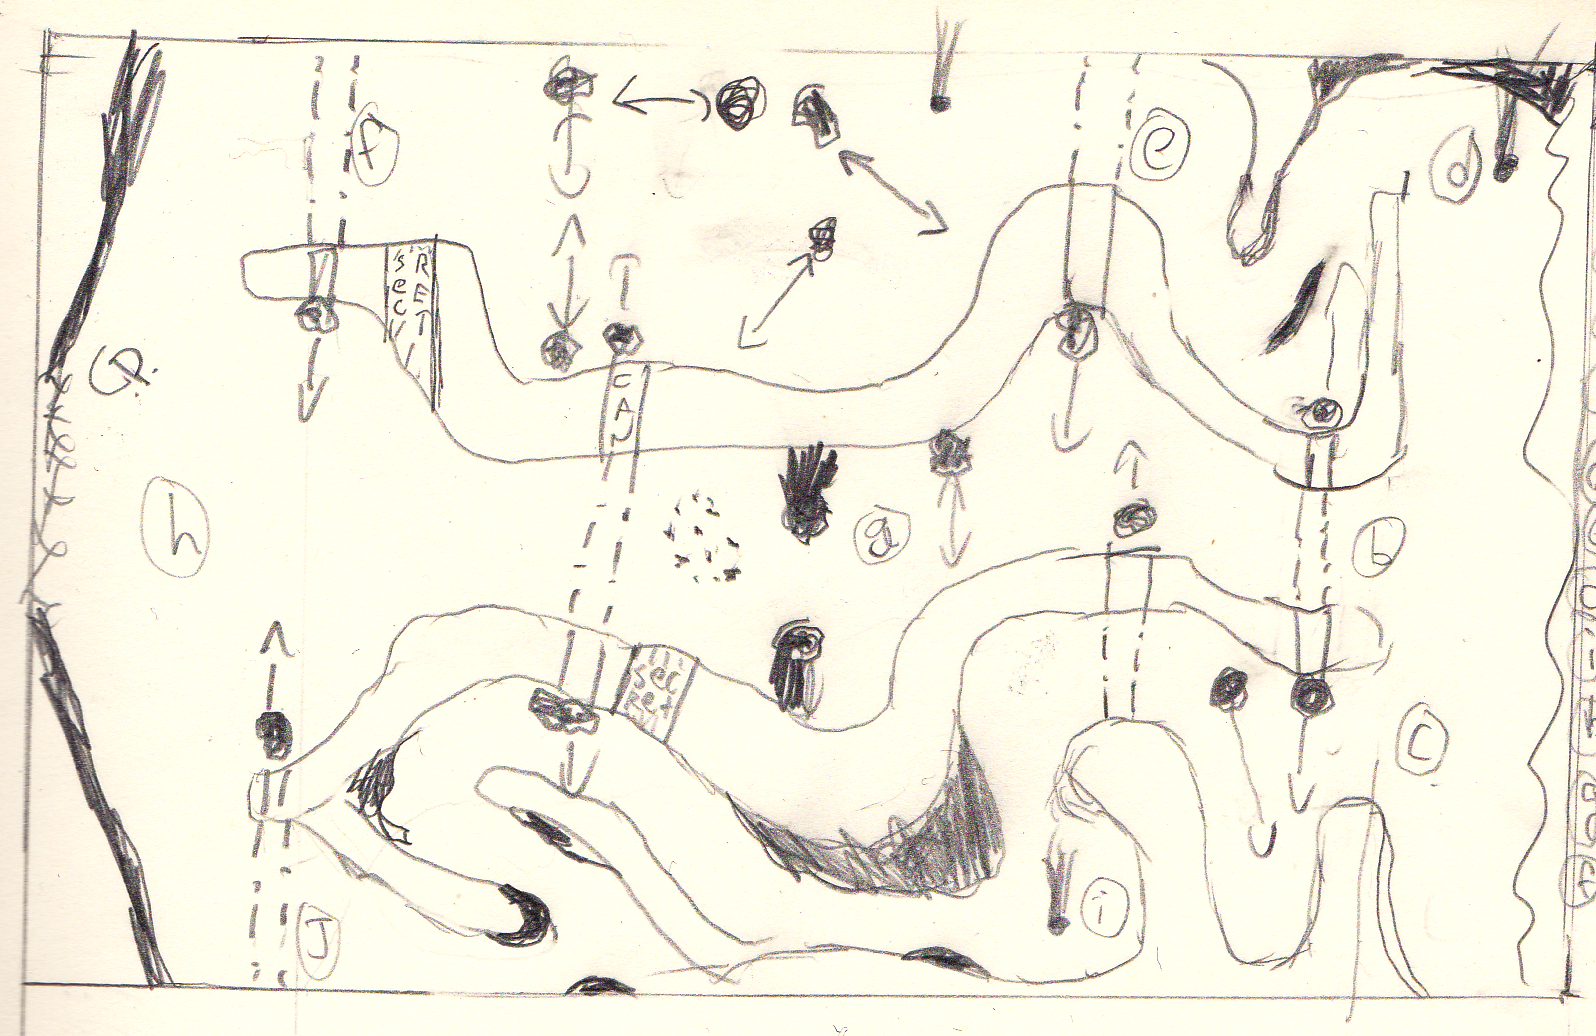 f
e
d
SEC
RET
CAN
g
h
a
b
sec
Ret
c
i
J